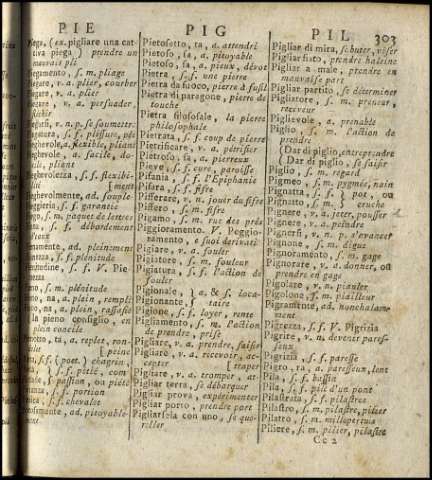 PIE PIG PIL 303
Piega, (ex. pigliare una cat-
tiva piega) prendre un
mauvais pli
Piegamento, s. m. pliage
Piegare, v. a. plier, courber
Piegare, v. a. plier
v. a. persuader,
fléchir
v. n. p. se soumettre
s. f. plissure, pli
a. flexible, pliant
a. facile, do-
pliant
Pieghevolezza, s. f. flexibi-
lité [ment
Pieghevolmente, ad. souple-
s. f. garantie
s. m. paquet de lettres
s. f. débordement
d'eaux
Pienamente, ad. pleinement
Pienezza, s. f. plénitude
Pienitudine, s. f. V. Pie-
nezza
Pieno, s. m. plénitude
Pieno, na, a. plein, rempli
Pieno, na, a. plein, rassasié
In pieno consiglio, en
plein conseile
ta, a. replet, ron-
[peine
s. f. (poet.) chagrin,
s. f. pitié, com-
passion, ou piété
s. f. portion
s. f. chevalet
Pietosamente, ad. pitoyable-
ment
Pietosetto, ta, a. attendri
Pietoso, sa, a. pitoyable
Pietoso, sa, a. pieux, dévot
Pietra, s. f. une pierre
Pietra da fuoco, pierre à fusil
Pietra di paragone, pierre de
touche
Pietra filosofale, la pierre
philosophale
Pietrata, s. f. coup de pierre
Pietrificare, v. a. pétrifier
Pietroso, sa, a. pierreux
Pieve, s. f. cure, paroisse
Pifania, s. f. l'Epiphanie
Pifara, s. f. fifre
Pifferare, v. n. jouer du fifre
Piffero, s. m. fifre
Pigamo, s. m. rue des prés
Piggioramento. V. Peggio-
namento, e suoi derivati
Pigiare, v. a. fouler
Pigiatore, s. m. fouleur
Pigiatura, s. f. l'action de
fouler
Pigionale, } a. & s. loca-
Pigionante, } taire
Pigione, s. f. loyer, rente
Pigliamento, s. m. l'action
de prendre, prise
Pigliare, v. a. prendre, saisir
Pigliare, v. a. recevoir, ac-
cepter [traper
Pigliare, v. a. tromper, at-
Pigliar terra, se débarquer
Pigliar prova, expérimenter
Pigliar porto, prendre port
Pigliarsela con uno, se que-
reller
Pigliar di mira, se buter, viser
Pigliar fiato, prendre haleine
Pigliar a male, prendre en
mauvaise part
Pigliar partito, se déterminer
Pigliatore, s. m. preneur,
receveur
Piglievole, a. prenable
Piglio, s. m. l'action de
prendre
(Dar di piglio, entreprendre
(Dar di piglio, se saisir
Piglio, s. m. regard
Pigmeo, s. m. pygmée, nain
Pignatta, s. f. } pot, ou
Pignatto, s. m. } cruche
Pignere, v. a. jeter, pousser
Pignere, v. a. peindre
Pignere, v. n. p. s'avancer
Pignone, s. m. digue
Pignoramento, s. m. gage
Pignorare, v. a. donner, ou
prendre en gage
Pigolare, v. n. piauler
Pigolone, s. m. piailleur
Pigramente, ad. nonchalam-
ment
Pigrezza, s. f. V. Pigrizia
Pigrire, v. n. devenir pares-
seux
Pigrizia, s. f. paresse
Pigro, ra, a. paresseux, lent
Pila, s. f. bassin
Pila, s. f. pile d'un pont
Pilastrata, s. f. pilastres
Pilastro, s. m. pilastre, pilier
Pilatro, s. m. millepertuis
Piliere, s. m. pilier, pilastre
Cc 2